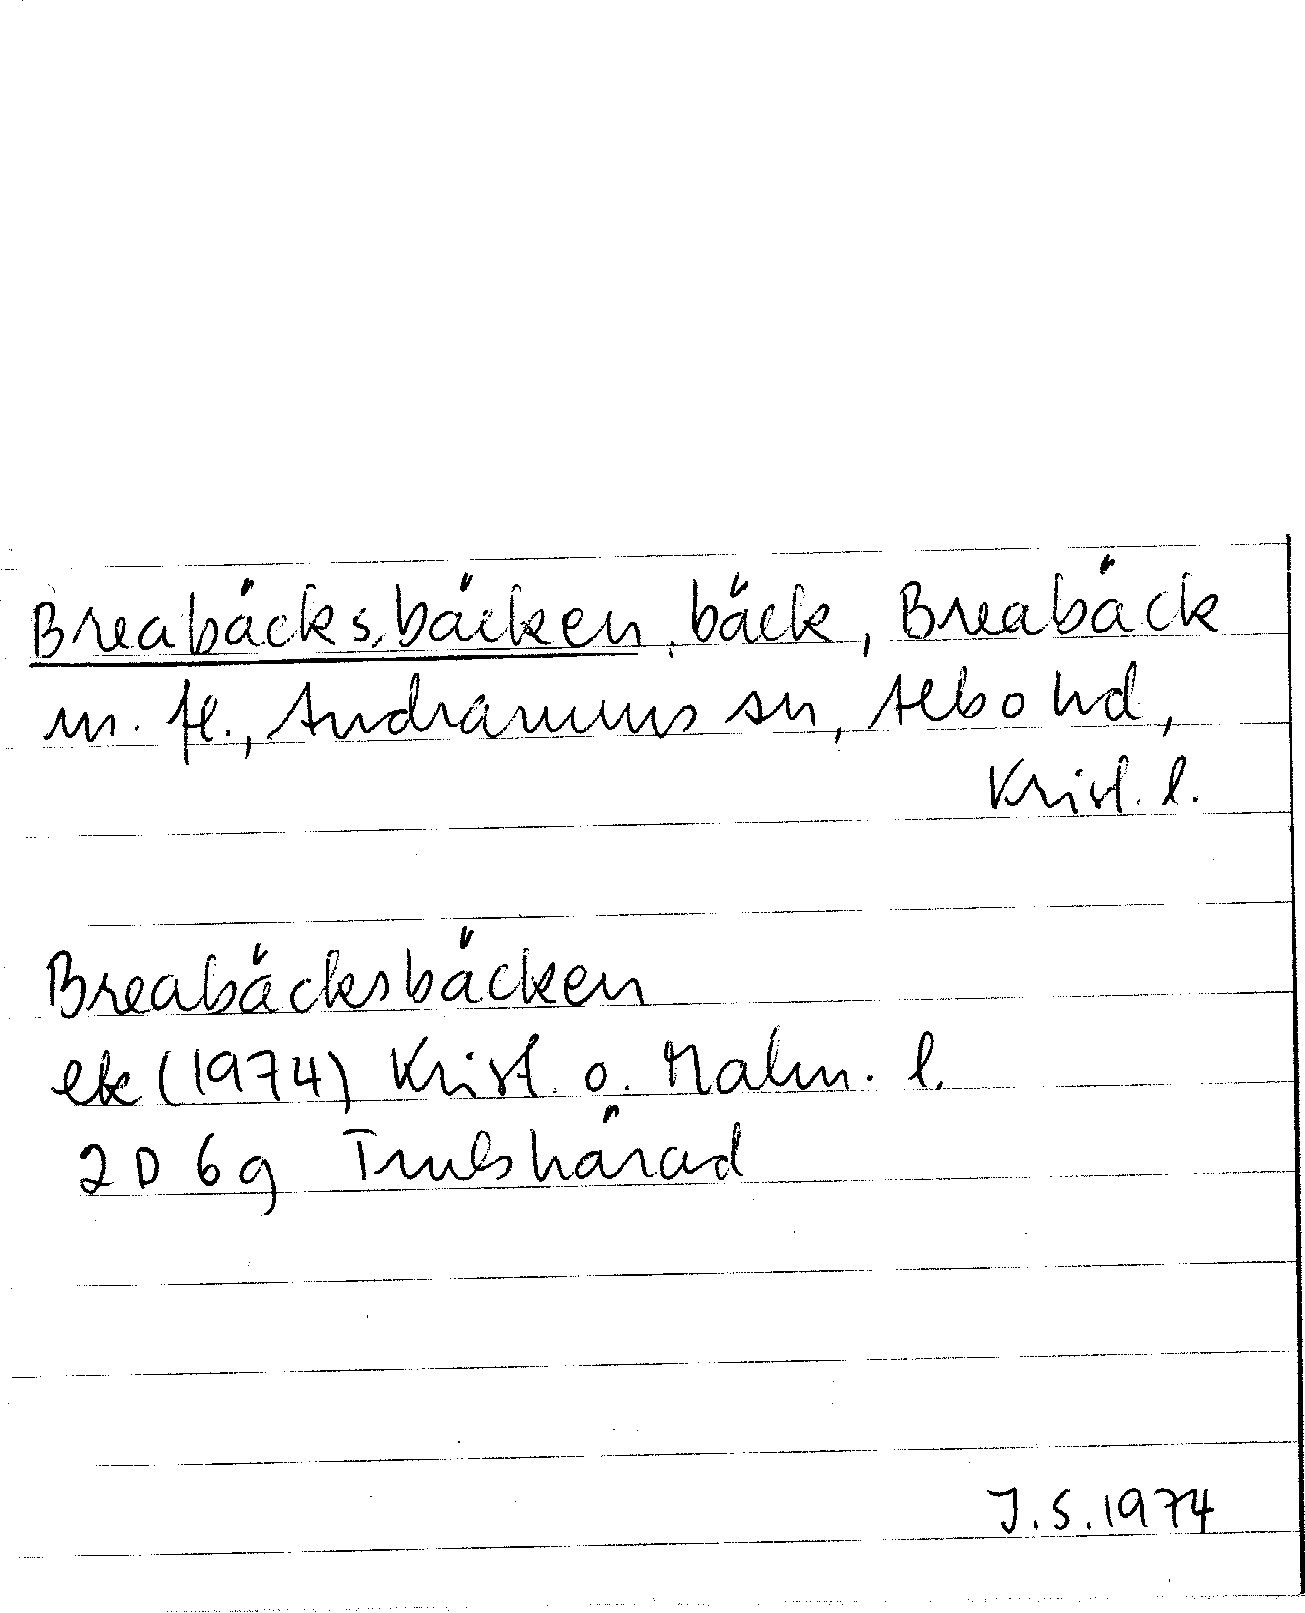 Breabäcksbäcken, bäck, Breabäck
m. fl., Andrarums sn, Albo hd,
Krist. l.
Breabäcksbäcken
ek (1974) Krist. o. Malm. l.
2D 6g Trulshärad
J.S. 1974